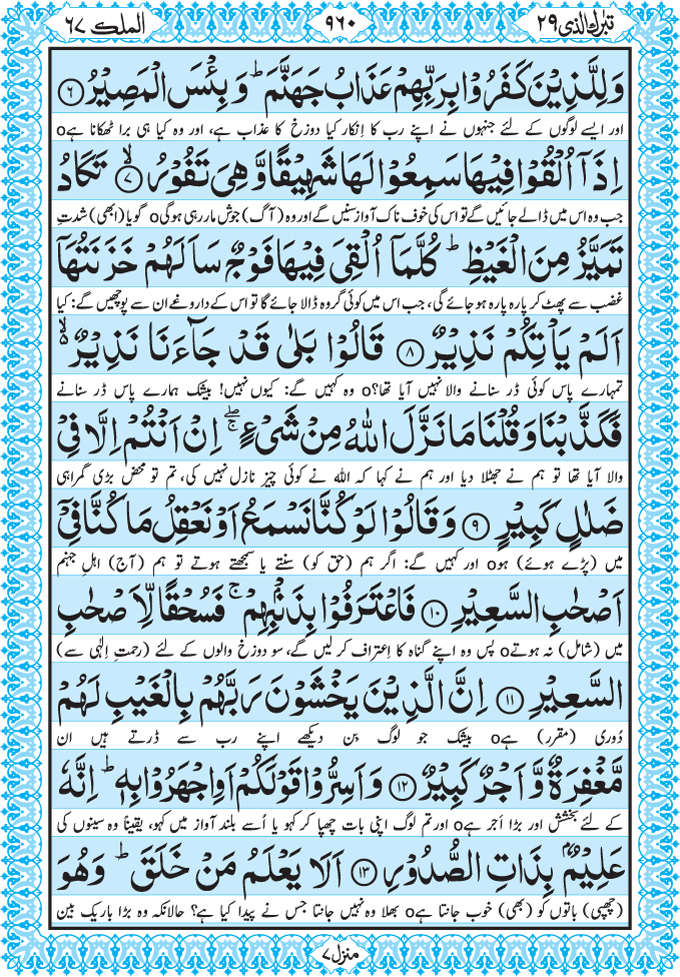 تبٰرك الذی ٢٩
٩٦٠
الملك ٦٧
وَلِلَّذِيْنَ كَفَرُوْا بِرَبِّهِمْ عَذَابُ جَهَنَّمَ ؕ وَبِئْسَ الْمَصِيْرُ ﴿۶﴾
اور ایسے لوگوں کے لئے جنہوں نے اپنے رب کا اِنکار کیا دوزخ کا عذاب ہے، اور وہ کیا ہی برا ٹھکانا ہےo
اِذَاۤ اُلْقُوْا فِيْهَا سَمِعُوْا لَهَا شَهِيْقًا وَّهِیَ تَفُوْرُ ۙ﴿۷﴾ تَكَادُ
جب وہ اس میں ڈالے جائیں گے تو اس کی خوف ناک آواز سنیں گے اور وہ (آگ) جوش مار رہی ہوگیo گویا (ابھی) شدتِ
تَمَيَّزُ مِنَ الْغَيْظِ ؕ كُلَّمَاۤ اُلْقِیَ فِيْهَا فَوْجٌ سَاَلَهُمْ خَزَنَتُهَاۤ
غضب سے پھٹ کر پارہ پارہ ہو جائے گی، جب اس میں کوئی گروہ ڈالا جائے گا تو اس کے داروغے ان سے پوچھیں گے: کیا
اَلَمْ يَاْتِكُمْ نَذِيْرٌ ﴿۸﴾ قَالُوْا بَلٰی قَدْ جَآءَنَا نَذِيْرٌ ۬ۙ
تمہارے پاس کوئی ڈر سنانے والا نہیں آیا تھا؟o وہ کہیں گے: کیوں نہیں! بیشک ہمارے پاس ڈر سنانے
فَكَذَّبْنَا وَقُلْنَا مَا نَزَّلَ اللّٰهُ مِنْ شَیْءٍ ۖۚ اِنْ اَنْتُمْ اِلَّا فِیْ
والا آیا تھا تو ہم نے جھٹلا دیا اور ہم نے کہا کہ اللہ نے کوئی چیز نازل نہیں کی، تم تو محض بڑی گمراہی
ضَلٰلٍ كَبِيْرٍ ﴿۹﴾ وَقَالُوْا لَوْ كُنَّا نَسْمَعُ اَوْ نَعْقِلُ مَا كُنَّا فِیْۤ
میں (پڑے ہوئے) ہوo اور کہیں گے: اگر ہم (حق کو) سنتے یا سمجھتے ہوتے تو ہم (آج) اہلِ جہنم
اَصْحٰبِ السَّعِيْرِ ﴿۱۰﴾ فَاعْتَرَفُوْا بِذَنْۢبِهِمْ ۚ فَسُحْقًا لِّاَصْحٰبِ
میں (شامل) نہ ہوتےo پس وہ اپنے گناہ کا اِعتراف کر لیں گے، سو دوزخ والوں کے لئے (رحمتِ اِلٰہی سے)
السَّعِيْرِ ﴿۱۱﴾ اِنَّ الَّذِيْنَ يَخْشَوْنَ رَبَّهُمْ بِالْغَيْبِ لَهُمْ
دُوری (مقرر) ہےo بیشک جو لوگ بن دیکھے اپنے رب سے ڈرتے ہیں ان
مَّغْفِرَةٌ وَّاَجْرٌ كَبِيْرٌ ﴿۱۲﴾ وَاَسِرُّوْا قَوْلَكُمْ اَوِ اجْهَرُوْا بِهٖ ؕ اِنَّهٗ
کے لئے بخشش اور بڑا اَجر ہےo اور تم لوگ اپنی بات چھپا کر کہو یا اُسے بلند آواز میں کہو، یقیناً وہ سینوں کی
عَلِيْمٌۢ بِذَاتِ الصُّدُوْرِ ﴿۱۳﴾ اَلَا يَعْلَمُ مَنْ خَلَقَ ؕ وَهُوَ
(چھپی) باتوں کو (بھی) خوب جانتا ہےo بھلا وہ نہیں جانتا جس نے پیدا کیا ہے؟ حالانکہ وہ بڑا باریک بین
منزل ٧